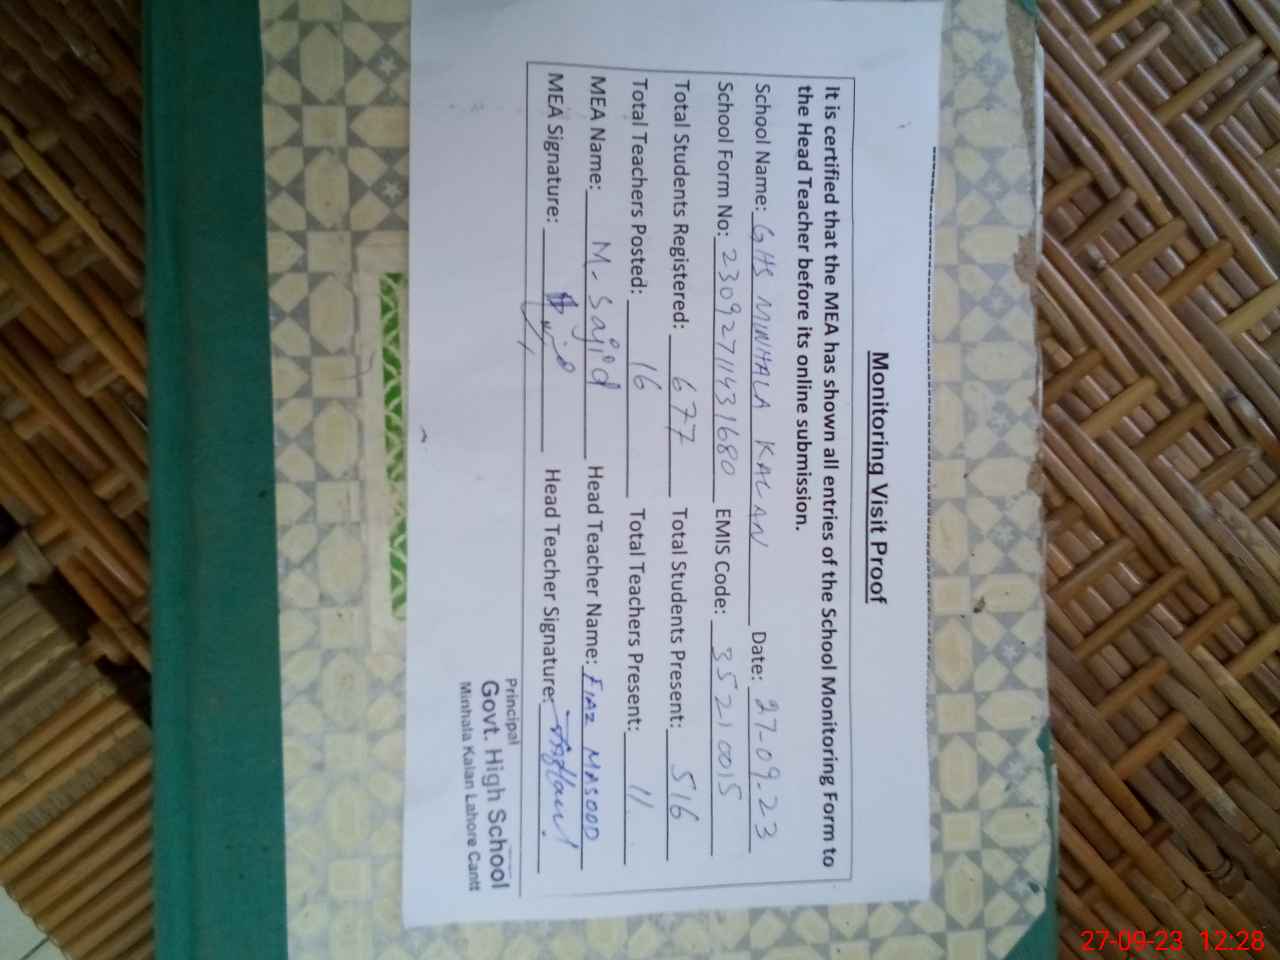 Monitoring Visit Proof
It is certified that the MEA has shown all entries of the School Monitoring Form to
the Head Teacher before its online submission.
School Name: GHS MINHALA KALAN Date: 27-09-23
School Form No: 23092711431680 EMIS Code: 35210015
Total Students Registered: 677 Total Students Present: 516
Total Teachers Posted: 16 Total Teachers Present: 11
MEA Name: M. Sajid Head Teacher Name: FIAZ MASOOD
MEA Signature: Head Teacher Signature:
Principal
Govt. High School
Minhala Kalan Lahore Cantt
27-09-23 12:28